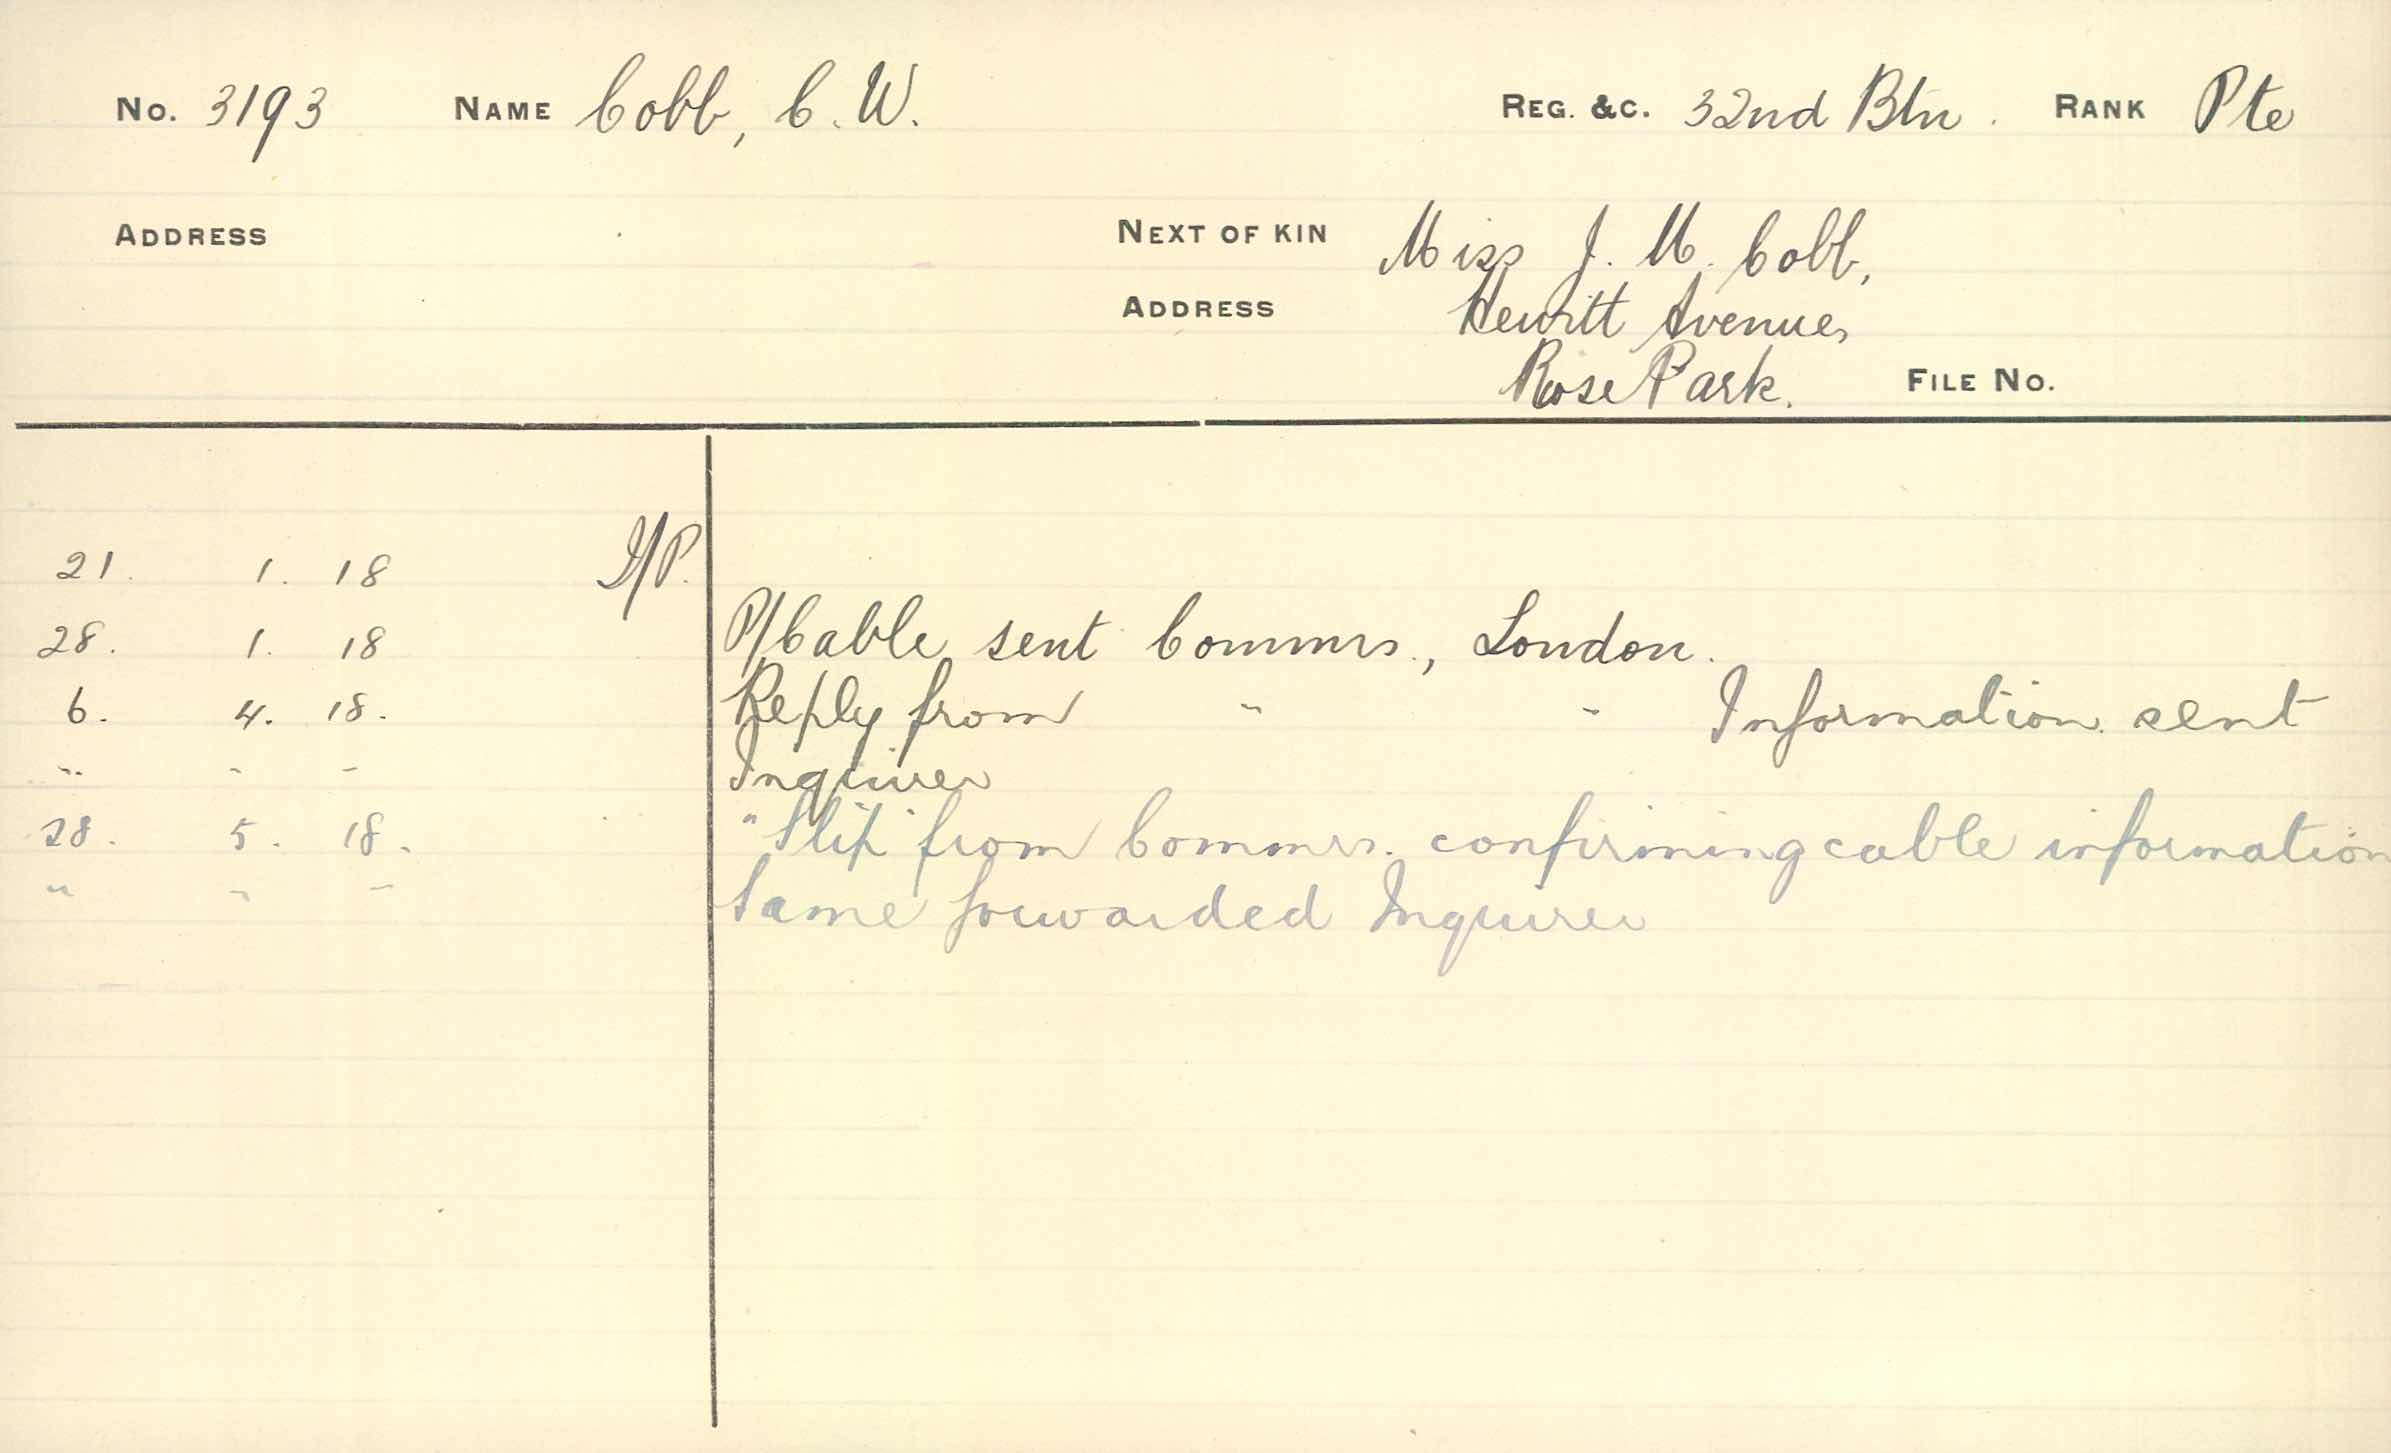 No. 3193 NAME Cobb, C. W. REG. &C. 32nd Btn. RANK Pte
ADDRESS NEXT OF KIN Miss J. M. Cobb,
ADDRESS Hewitt Avenue,
Rose Park. FILE No.
21. 1. 18
28. 1. 18 P/Cable sent Commrs., London.
6. 4. 18. Reply from " " Information sent
" " " Inquirer
28. 5. 18. "Slip" from Commrs. confirming cable information
" " " Same forwarded Inquirer